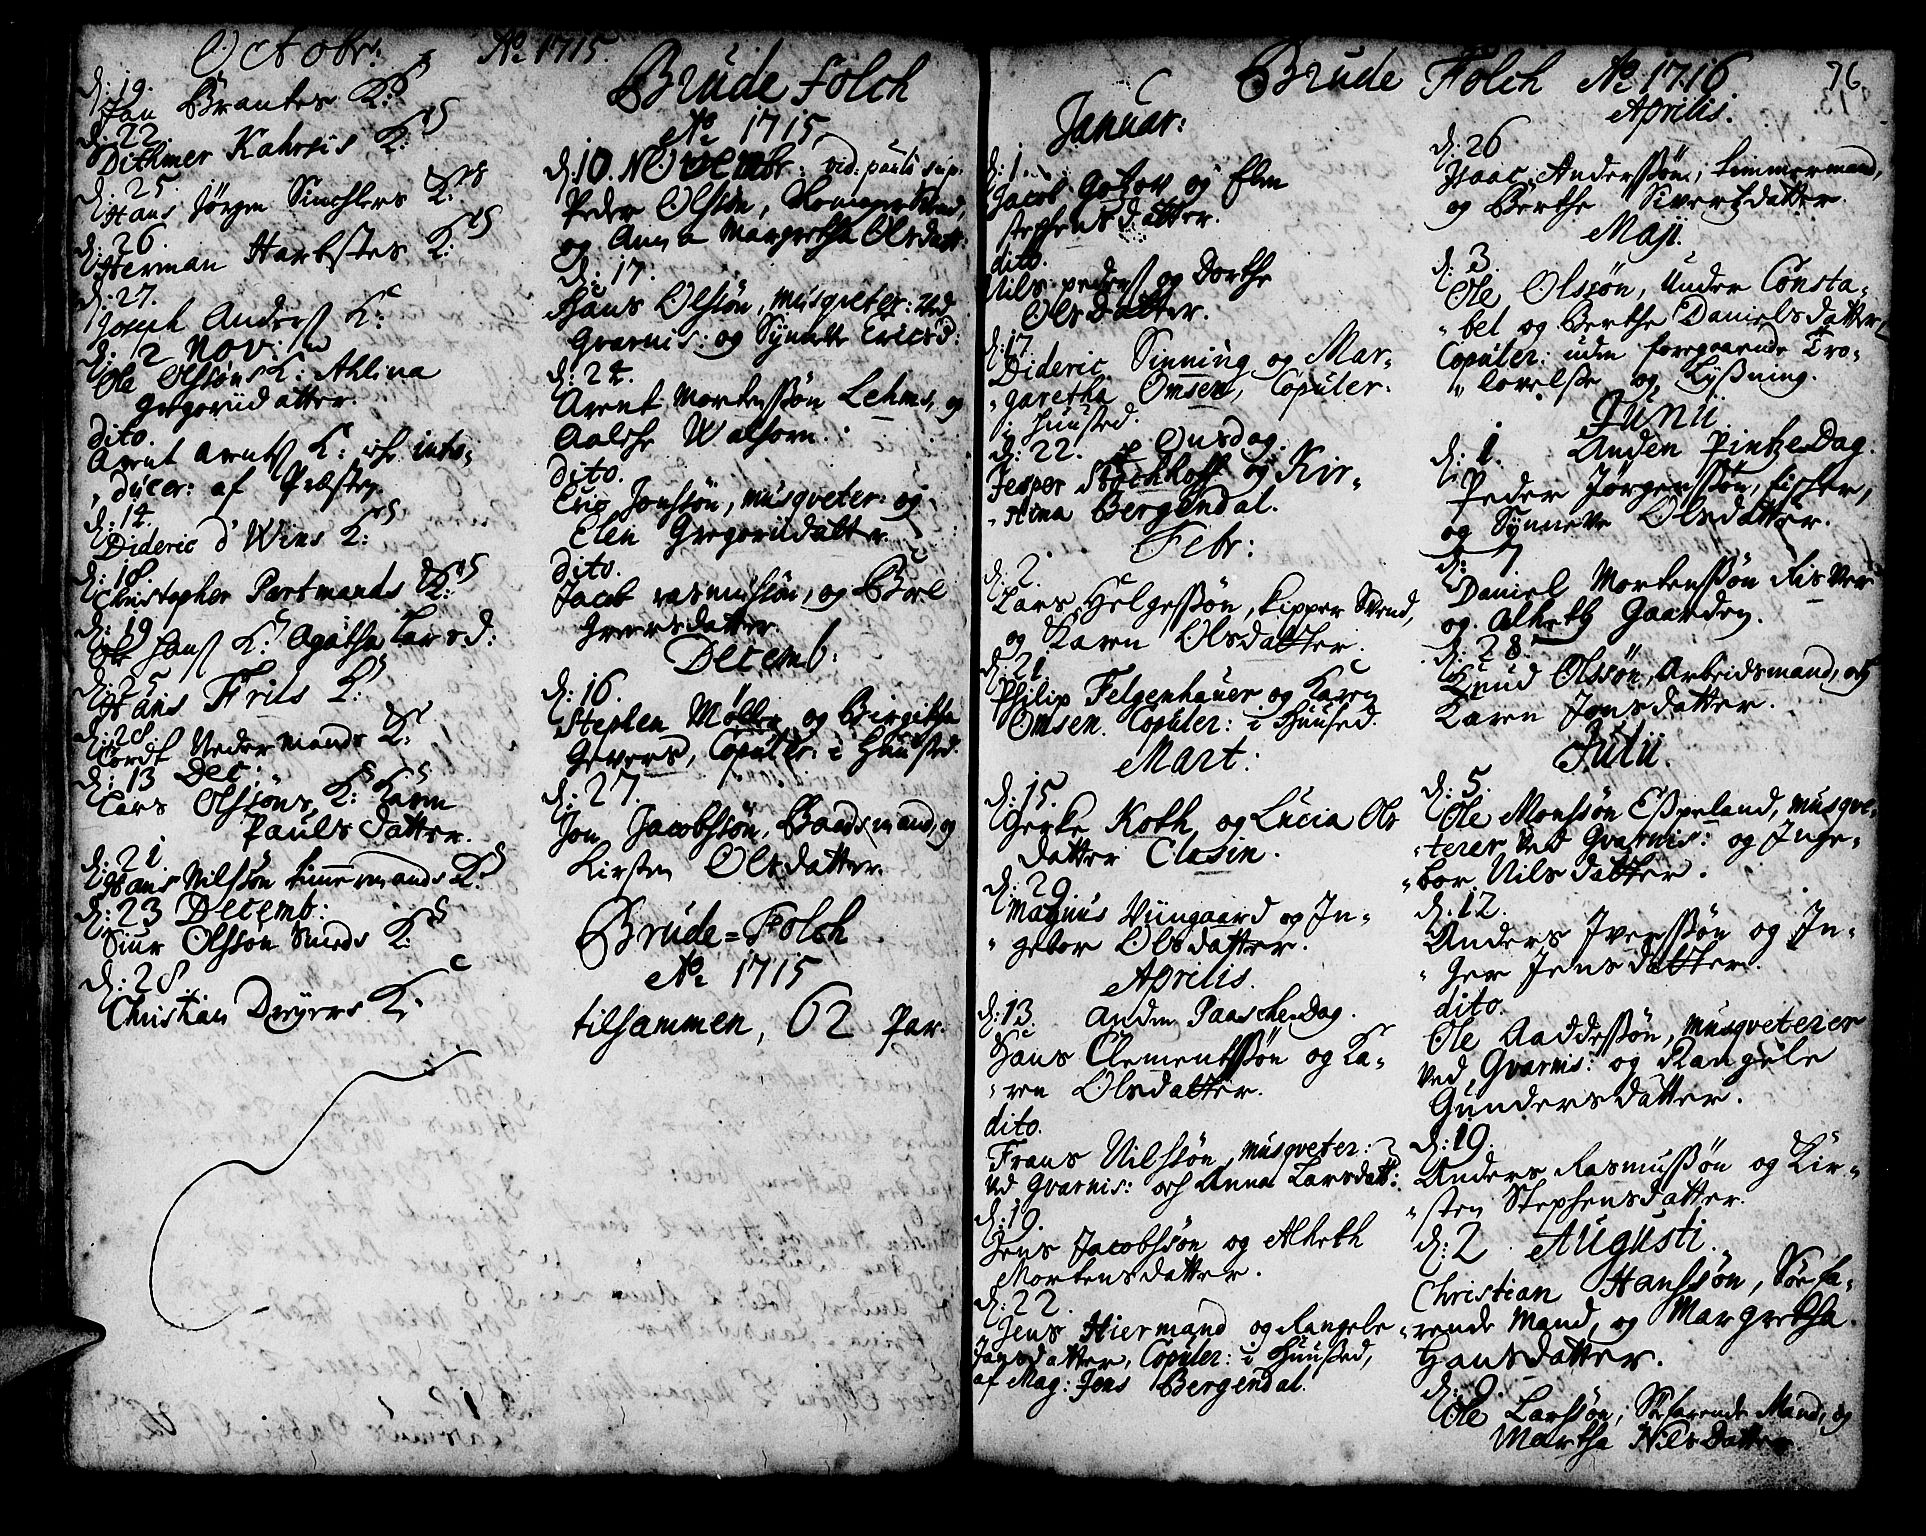 Octobr: Aº 1715.
d: 19.
Jan Brantes K:
d: 22.
Dithmer Kahrsis K:
d: 25.
Hans Jørgen Sinchlers K:
d: 26.
Herman Harbstes K:
d: 27.
Joseph Anders K:
d: 2 Nov:
Ole Olssøns K: Ahlina
Gregoriidatter.
dito.
Arent Arents K: intro-
ducer: af Præsten
d: 14.
Dideric d' Wins K:
d: 18
Christopher Partmands K:
d: 19
K: Agatha Larsd:
d: 25
Hans Friis K:
d: 28.
Cordt Vedermands K:
d: 13 Dec:
Lars Olssøns K: Karen
Paulsdatter.
d: 21.
Hans Nilssøn timmermands K:
d: 23 Decemb:
Siur Olssøn Smeds K:
d: 28.
Christian Dreyers K:
Brude folch
Aº 1715
d: 10. Novembr: vid: pauló sup.
Peder Olssøn,
og Anna Margretha Olsdatt:
d: 17.
Hans Olssøn, musqveter: ved
Gvarnis: og Synneve Ericsd:
d: 24.
Arent Mortenssøn Lehms, og
Aalche Walhorn.
dito.
Eric Jonssøn, musqveter: og
Elen Gregoriidatter
dito.
Jacob rasmussøn, og Boel
Iversdatter
Decemb:
d: 16.
Stephen Møller og Birgitha
Gevers, Copuler: i Huuset.
d: 27.
Jon Jacobssøn, Baadsmand, og
Kirsten Olsdatter.
Brude=Folch
Aº 1715
tilsammen, 62 Par.
Brude Folch Aº 1716
76
Januar:
d: 1.
Jacob og Elen
Stephensdatter.
dito.
Nils peders og Dorthe
Olsdatter.
d: 17
Dideric Sinning og Mar-
garetha Omsen, Copuler:
i Huused.
d: 22. Onsdag
Jesper Stockhoff og Kir-
stina Bergendal.
Febr:
d: 2.
Lars Helgessøn, kipper Svend,
og Karen Olsdatter.
d: 21.
Philip Felgenhauer og Karen
Omsen. Copuler: i Huused.
Mart:
d: 15.
Gerke Koth og Lucia Ols
datter Clasen.
d: 29.
Magnus Viingaard og In-
gebor Olsdatter.
Aprilis.
d: 13 Anden Paaschedag.
Hans Clementssøn og Ka-
ren Olsdatter.
dito.
Frans Nilssøn, musqveter:
ved Gvarnis: och Anna Larsdatt:
d: 19.
Jens Jacobssøn og Alheth
Mortensdatter.
d: 22.
Jens Hiermand og Rangele
Jansdatter, Copuler: i Huused,
af Mag: Jens Bergendal.
Aprilis.
d: 26
Isaac Anderssøn, timmermand,
og Berthe Sivertzdatter.
Maji.
d: 3.
Ole Olssøn, Under Consta-
bel og Berthe Danielsdatter
Copuler: uden foregaaende Tro-
lovelse og Lysning.
Junii
d: 1. Anden Pintzedag.
Peder Jørgenssøn, fischer,
og Synneve Olsdatter.
d: 7
Daniel Mortenssøn Risver
og Alheth Gaarden.
d: 28.
Knud Olssøn, Arbeidsmand, og
Karen Jonsdatter.
Julii.
d: 5.
Ole Monssøn Espeland, musqve-
terer ved Gvarnis: og Inge-
bor Nilsdatter.
d: 12.
Anders Iverssøn og In-
ger Jensdatter.
dito.
Ole Aaddessøn, musqveterer
ved Gvarnis: og Rangele
Gundersdatter.
d: 19.
Anders Rasmussøn og Kir-
sten Stephensdatter.
d: 2 Augusti.
Christian Hanssøn, Søefa-
rende Mand, og Margretha
Hansdatter.
d: 9.
Ole Larssøn, Søefarende Mand, og
Martha Nilsdatter